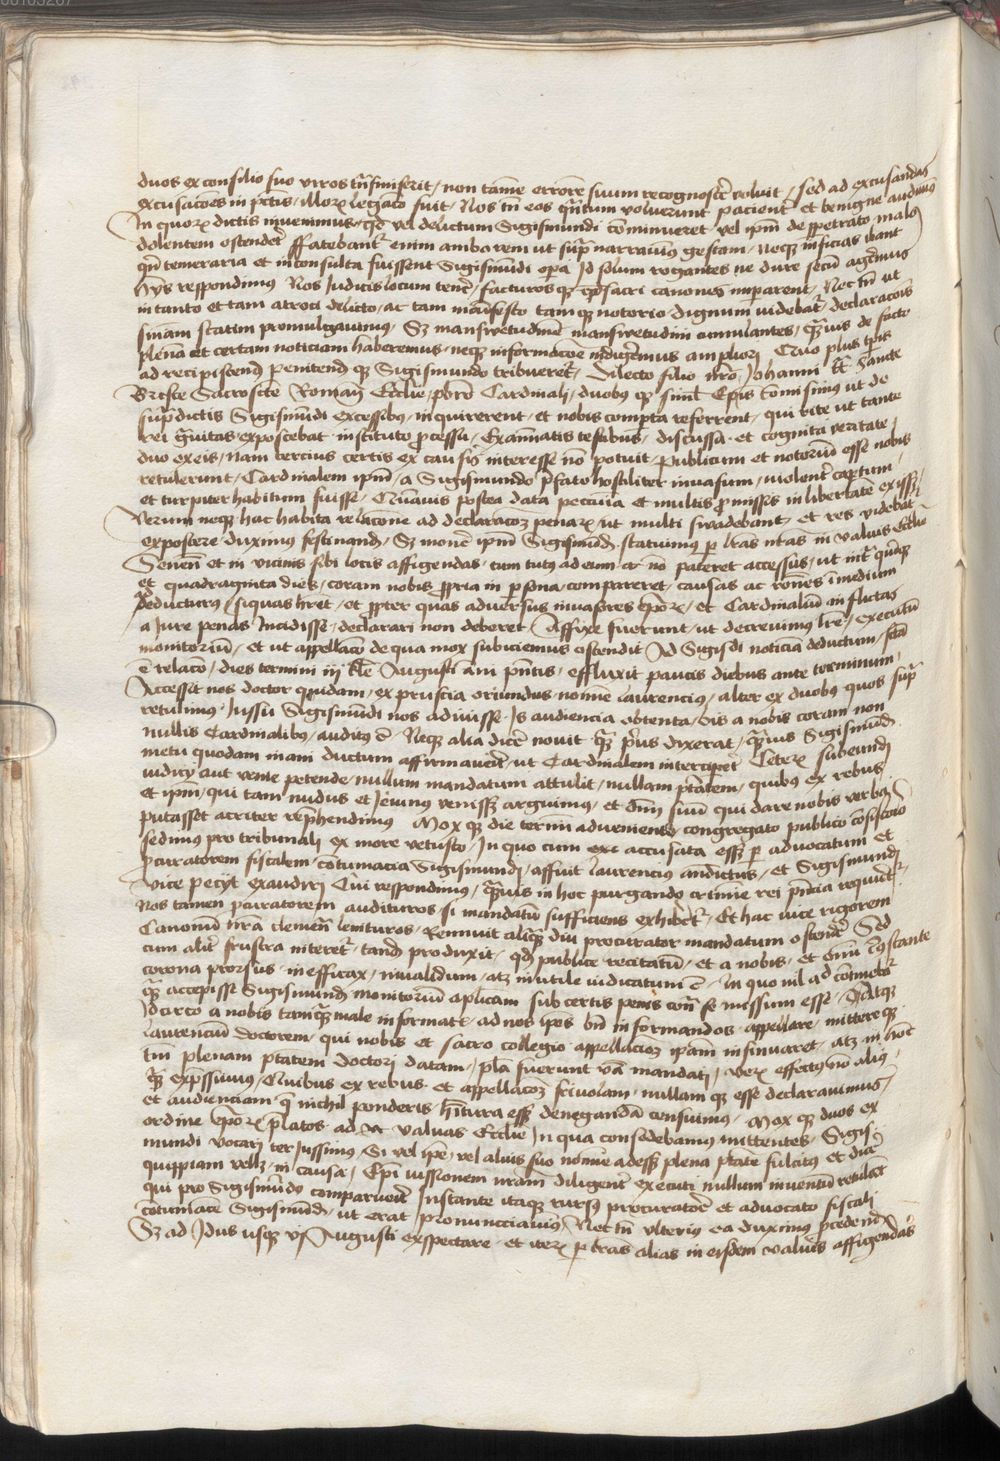 duos ex consilio suo viros trāsmiserit / non tamē errorē suum recognoscē voluit / sed ad excusandas
excusacōes in pctīs / illorꝫ legacō fuit / Nos tn̄ eos qn̄tum voluerunt pacienť et benigne audiuimꝰ
In quorꝫ dictis inuenimus / qd̄ vel delictum Sigismundi cōminueret / vel ipm̄ de ppetrato malo
dolentem ostendeť ffatebantᷣ enim ambo rem ut supᷓ narrauimꝰ gestam / Neqꝫ inficias ibant
qn̄ temeraria et inconsulta fuissent Sigismūdi opa Id solum rogantes ne dure secū agem̄us
Hijs respondimꝰ Nos Judicis locum tenē / facturos qꝫ qd̄ sacri canones imparent / Nec tn̄ ut
in tanto et tam atroci delicto / ac tam manifesto tamqꝫ notorio dignum videbatᷣ / declaracōis
sniam statim promulgauimus / Sꝫ mansuetudinē mansuetudini cumulantes / qᷓuis de facto
plenā et certam noticiam haberemus / neqꝫ informacōe indigemus ampliori Quo plus tpis
ad recipiscend̄ penitend̄ qꝫ Sigismundo tribueretᷣ / Dilecto filio nrō Johanni tt̄ Sancte
Brisce Sacroscte Romañ Ecclīe pbrō Cardinali / duobꝰ qꝫ simł Epis cōmisimus ut de
supᷓdictis Sigismūdi excessibꝰ / inquirerent / et nobis comperta referrent / qui rite ut tante
rei gᷓuitas exposcebat / instituto pcessu / Examinatis testibus / discussa et cognita veritate
duo ex eis / nam tercius certis ex causis interesse nō potuit / Publicum et notoriū esse nobis
retulerunt / Cardinalem ipm̄ / a Sigismundo pfato hostiliter inuasum / violenť captum /
et turpiter habitum fuisse / Quāuis postea data pecunia et multis pmissis in libertatē exisset
Verum neqꝫ hac habita relacōne ad declaracōꝫ penarꝫ / ut multi swadebant / et res videbatᷣ
exposcere duximus festinand̄ / Sꝫ monē ipm̄ Sigismūd̄ statuimus p lrās nrās in valuis Ecclīe
Senen̄ et in vicinis sibi locis affigendas / cum tutꝰ ad eum ar nō pateret accessus / ut intᷓ quīqꝫ
et quadraginta dies / coram nobis ppria in psona / compareret / causas ac rōnes īmedium
Deducturꝰ / siquas hrēt / et pptēr quas aduersus inuasores epōrꝫ / et Cardinaliū inflictas
a Jure penas Incidisse / declarari non deberet / Affixe fuerunt / ut decreuimus lrē / executū
monitoriū / et ut appellacō de qua mox subiciemus ostendit Ad Sigisdi noticiā deductum / fcā
ē relacō / dies termini iij kłe Augusti ani pn̄tis / effluxit paucis diebus ante terminum /
Accessit nos doctor quidam / ex pruscia oriundus / nomine laurencius / alter ex duobꝰ quos supᷓ
retulimus / Jussu Sigismūdi nos adiuisse / Is audiencia obtenta / bis a nobis coram non
nullis Cardinalibꝰ / auditꝰ ē / Neqꝫ alia dicē nouit qᷓꝫ prius dixerat / qᷓuis Sigismūd̄
metu quodam inani ductum affirmauerit / ut Cardinalem intercipet Ceterꝫ subeundi
iudicij aut venie petende / nullum mandatum attulit / nullam ptatem / quibꝰ ex rebus
et ipm̄ / qui tam nudus et Jeiunus venisset arguimus / et dnm̄ suū qui dare nobis verba
putasset acriter repᷓhendimus Mox qꝫ die termini adueniente congregato publico cōsistorio
sedimus pro tribunali ex more vetusto / In quo cum exc accusata esset p aduocatum et
pcuratorem fiscalem / cōtumacia Sigismundi / affuit laurencius andictus / et Sigismundi
vice peciit exaudiri Cui respondimus / qᷓuis in hoc purgando crimie rei pn̄cia requirētᷣ
Nos tamen pcuratorem audituros / si mandatū sufficiens exhibetᷣ / Et hac vice rigorem
Canonū nrā clemen̄ lenituros / Rennuit aliqᷓꝫ diu procurator mandatum ostendē Sed
cum aliť frustra interetᷣ / tandē produxit / qd̄ publice recitatū / et a nobis / et omnī cūstante
corona prorsus inefficax / inualidum / atqꝫ inutile iudicatum ē / In quo nil ad cōtinebatᷣ
qᷓꝫ accepisse Sigismund̄ / monitoriū aplicam sub certis penis contᷓ se missum esse / Datqꝫ
Idcirco a nobis tamqᷓꝫ male informatꝭ / ad nos ipos bn̄ informandos appellare / mittere qꝫ
laurenciū doctorem / qui nobis et sacro collegio appellacōꝫ ipam insinuaret / atqꝫ in hoc
tm̄ plenam ptatem doctori datam / pła fuerunt vā mandati / verꝫ effectꝰ nō aliꝰ /
qᷓꝫ expᷓssimus / Quibus ex rebus et appellacōꝫ friuolam / nullam qꝫ esse declarauimus /
et audienciam qᷓ nichil ponderis / hitura esset denegandā censuimus / Mox qꝫ duos ex
ordine epōrꝫ plātos ad ar valuas Ecclīe In qua considebamus mittentes / Sigis
mundi vocari ter Jussimus / Si vel ipe / vel alius suo noīne adesset plena ptate fulcitus et dicē
quippiam vellꝫ / in causa / Epī iussionem nram diligenť executi nullum inuentū retulerūt
qui pro Sigismūdo comparuerit Instante itaqꝫ rursꝰ procuratore et aduocato fiscali
cōtumacē Sigismūd̄ / ut erat pronunciauimꝰ / Nec tn̄ vlterius ea duximus pcedend̄
Sꝫ ad Idus usqꝫ vj Augusti exspectare / et iterꝫ p lrās alias in eisdem valuis affigendas